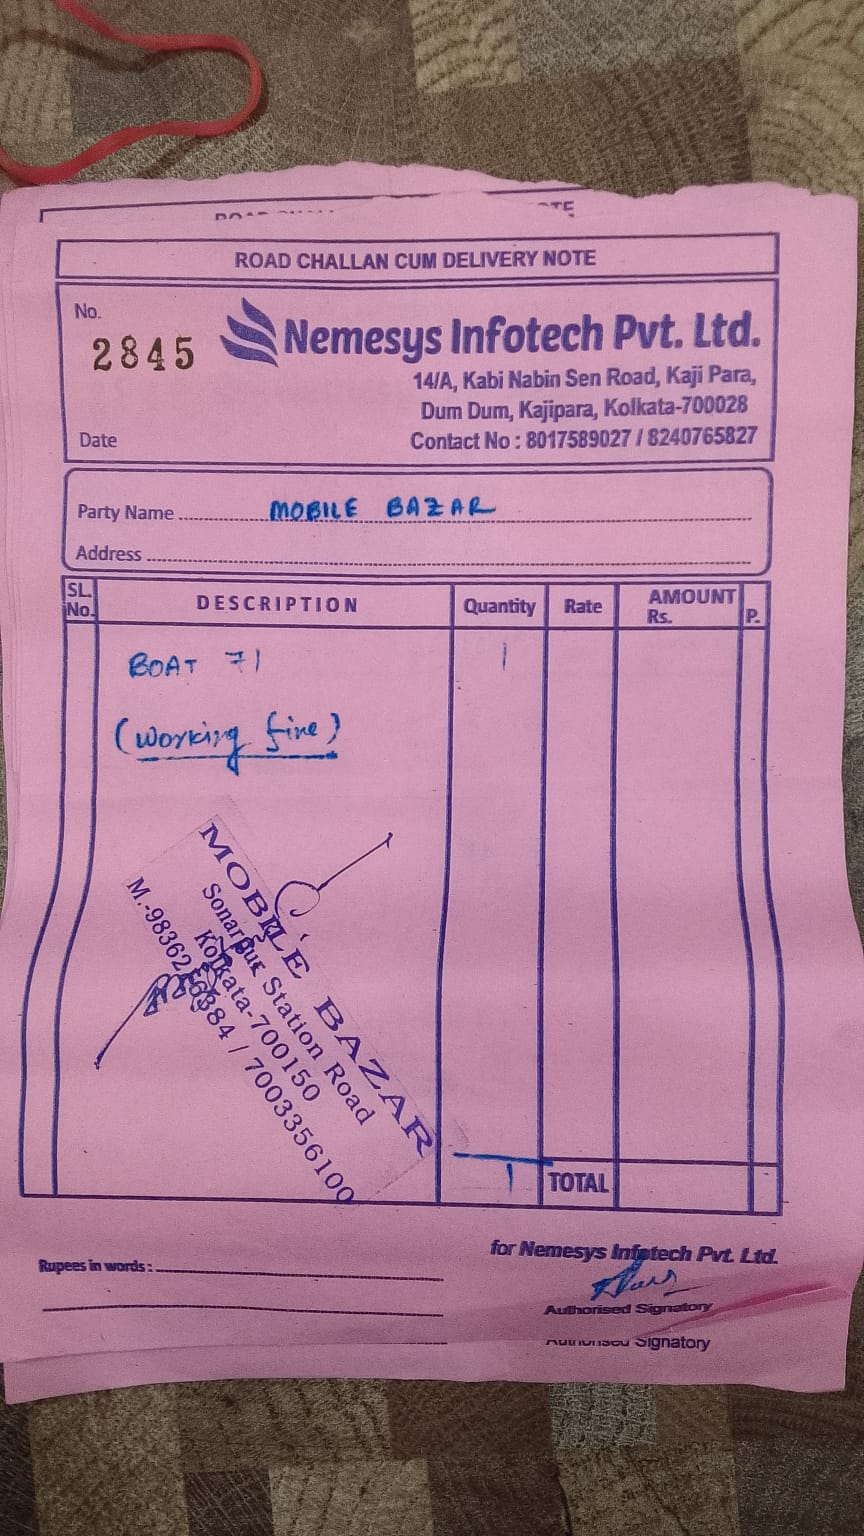 ROAD CHALLAN CUM DELIVERY NOTE
No.
2845
Nemesys Infotech Pvt. Ltd.
14/A, Kabi Nabin Sen Road, Kaji Para,
Dum Dum, Kajipara, Kolkata-700028
Date
Contact No : 8017589027 / 8240765827
Party Name MOBILE BAZAR
Address
SL. No. DESCRIPTION Quantity Rate AMOUNT Rs. P.
BOAT 71 1
(working fine)
MOBILE BAZAR
Sonarpur Station Road
Kolkata-700150
/ 7003356100
1 TOTAL
for Nemesys Infotech Pvt. Ltd.
Rupees in words :
Authorised Signatory
Authorised Signatory